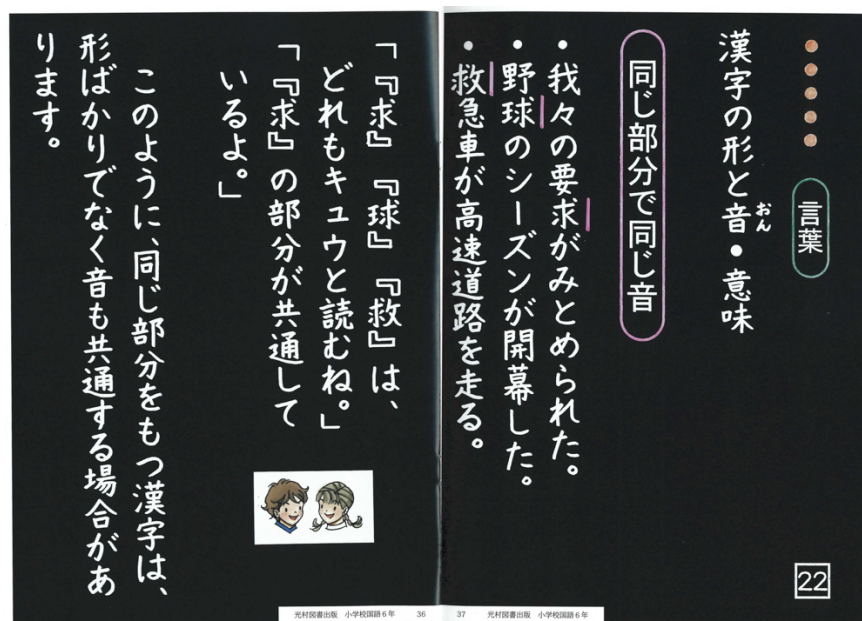 言葉
漢字の形と音・意味
おん
同じ部分で同じ音
・我々の要求がみとめられた。
・野球のシーズンが開幕した。
・救急車が高速道路を走る。
「『求』『球』『救』は、
どれもキュウと読むね。」
「『求』の部分が共通して
いるよ。」
このように、同じ部分をもつ漢字は、
形ばかりでなく音も共通する場合があ
ります。
22
光村図書出版 小学校国語6年 36
37 光村図書出版 小学校国語6年